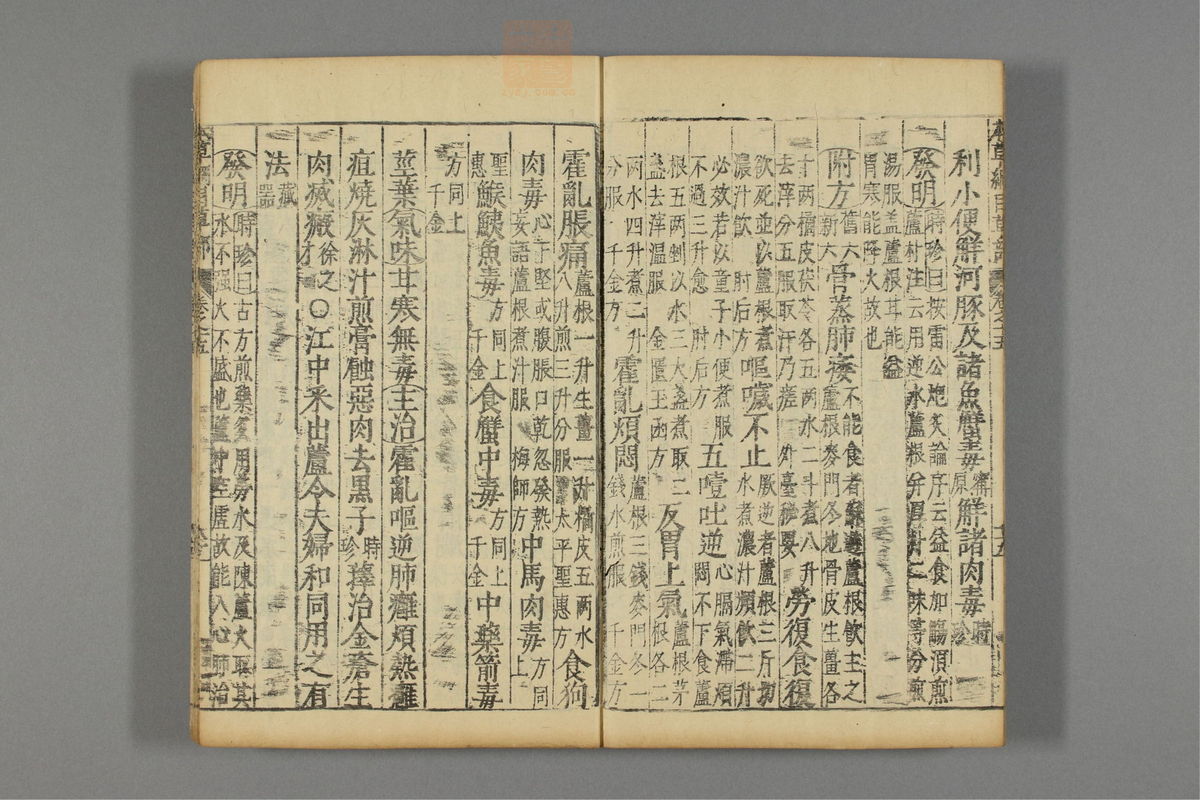 利小便解河豚及諸魚蟹毒蘇原解諸肉毒時珍
發明時珍曰按雷公炮炙論序云益食加觴須煎
蘆朴注云用逆水蘆根分厚朴二味等分煎
湯服蓋蘆根甘能益
胃寒能降火故也
附方舊六新六骨蒸肺痿不能食者蘇遊蘆根飲主之
蘆根麥門冬地骨皮生薑各
十兩橘皮茯苓各五兩水二斗煮八升
去滓分五服取汗乃瘥 外臺秘要勞復食復
飲死並以蘆根煮
濃汁飲 肘后方嘔噦不止厥逆者蘆根三斤切
水煮濃汁頻飲二升
必效若以童子小便煮服
不過三升愈 肘后方五噎吐逆心膈氣滯煩
悶不下食蘆
根五兩剉以水三大盞煮取二
盞去滓溫服 金匱玉函方反胃上氣蘆根茅
根各二
兩水四升煮二升
分服 千金方霍亂煩悶蘆根三錢麥門冬一
錢水煎服 千金方
霍亂脹痛蘆根一升生薑一升橘皮五兩水
八升煎三升分服 太平聖惠方食狗
肉毒心下堅或腹脹口乾忽發熱
妄語蘆根煮汁服 梅師方中馬肉毒方同
上
聖
惠鯸鮧魚毒方同上
千金食蟹中毒方同上
千金中藥箭毒
方同上
千金
莖葉氣味甘寒無毒主治霍亂嘔逆肺癰煩熱癰
疽燒灰淋汁煎膏蝕惡肉去黑子時珍籜治金瘡生
肉滅瘢徐之才○江中采出蘆令夫婦和同用之有
法藏器
發明時珍曰古方煎藥多用勞水及陳蘆火取其
水不强火不盛也蘆中空虛故能入心肺治